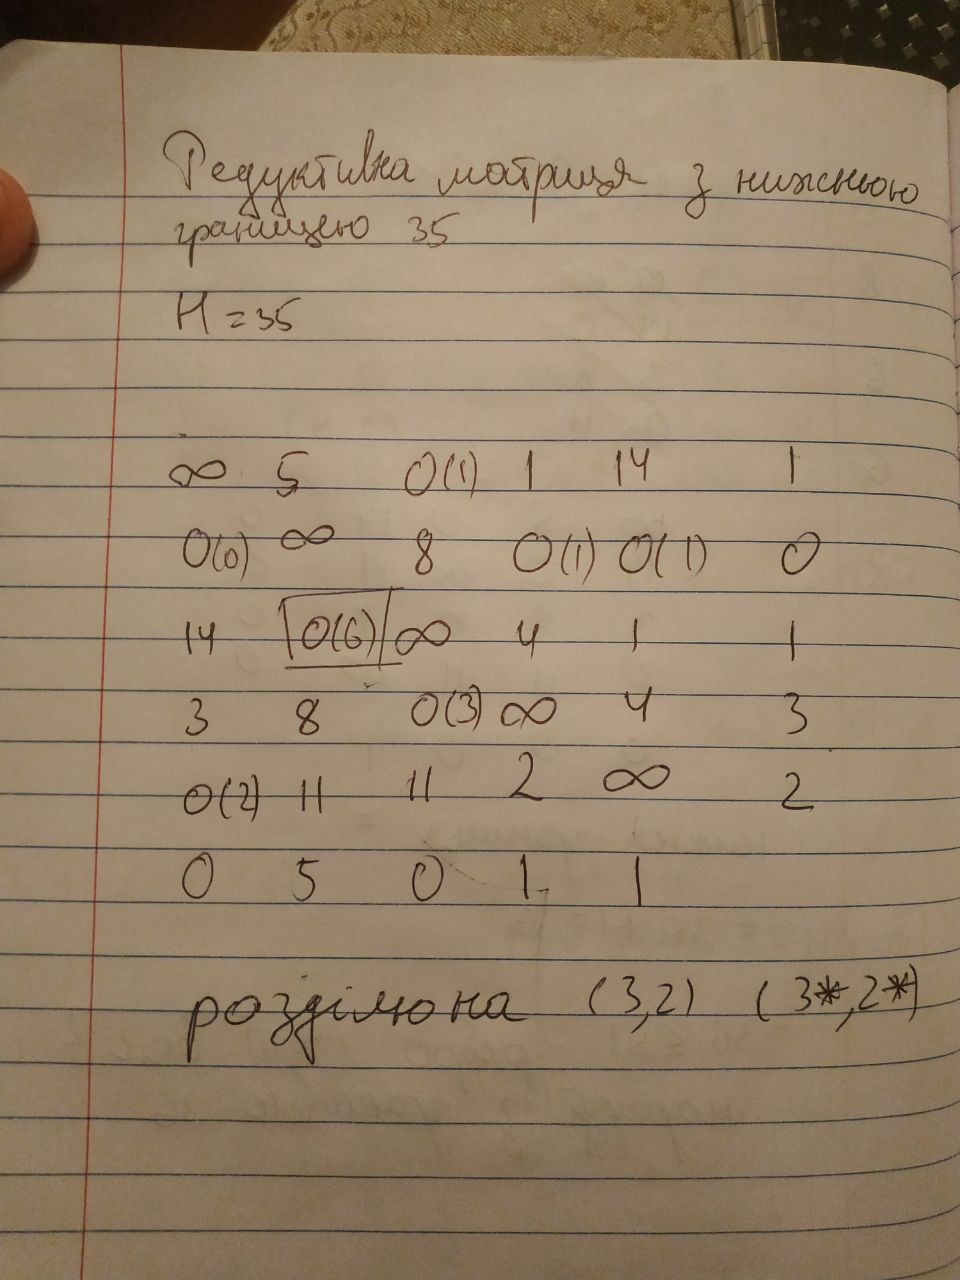 Редуктивна матриця з нижньою
границею 35
H = 35
∞ 5 0(1) 1 14 1
0(0) ∞ 8 0(1) 0(1) 0
14 0(6) ∞ 4 1 1
3 8 0(3) ∞ 4 3
0(2) 11 11 2 ∞ 2
0 5 0 1 1
розділю на (3,2) (3*,2*)